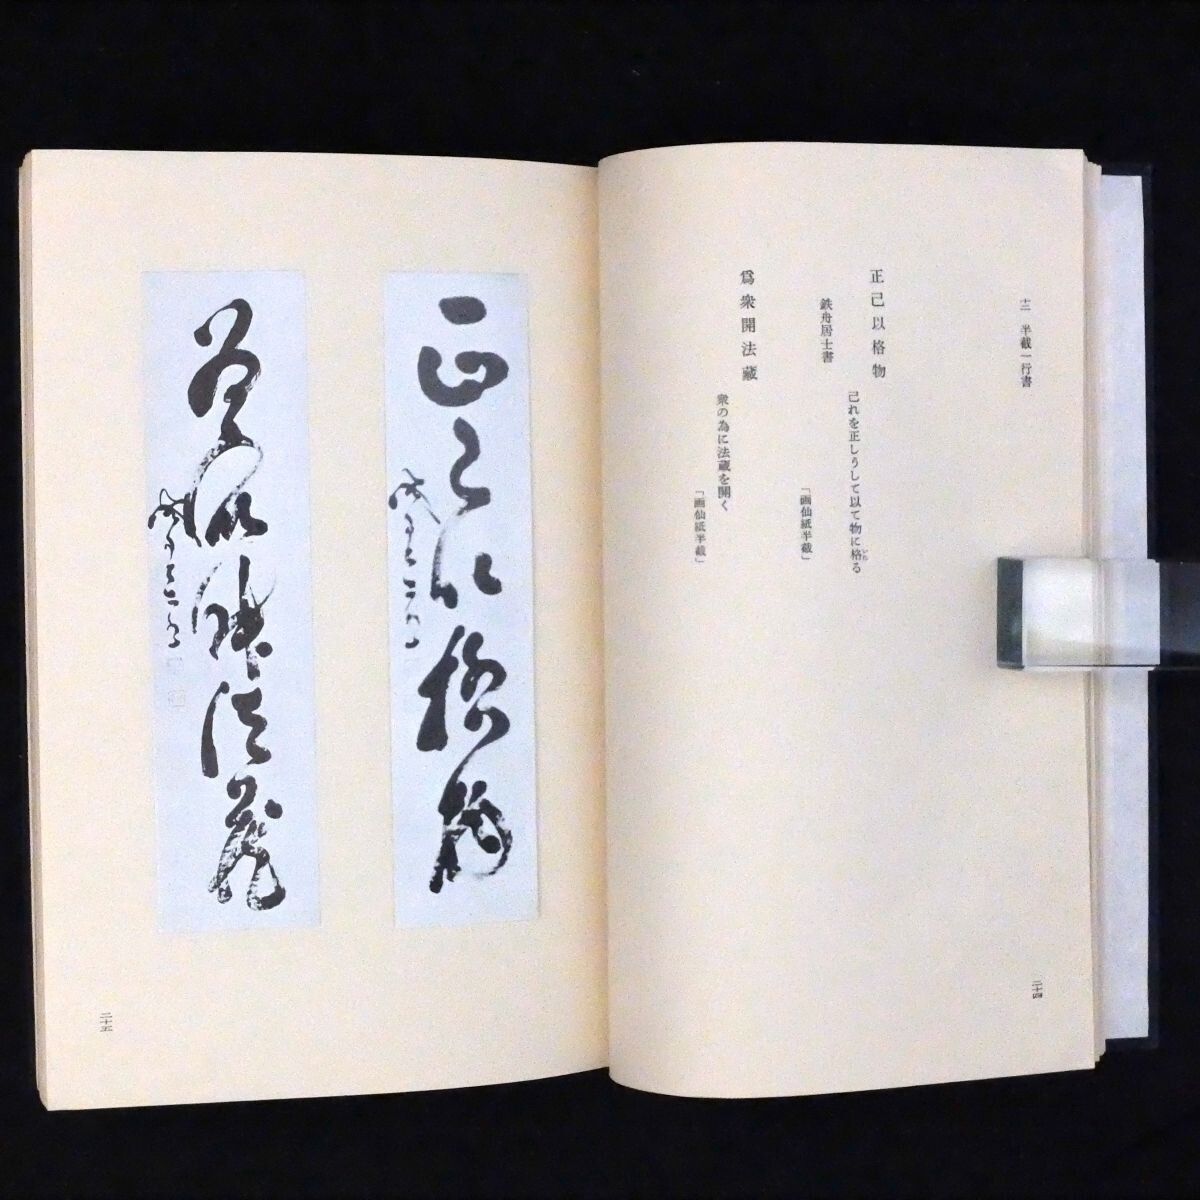 十三 半截一行書
正己以格物
己れを正しうして以て物に格る
鉄舟居士書
「画仙紙半截」
爲衆開法蔵
衆の為に法蔵を開く
「画仙紙半截」
二十四
正己以格物
爲衆開法蔵
二十五